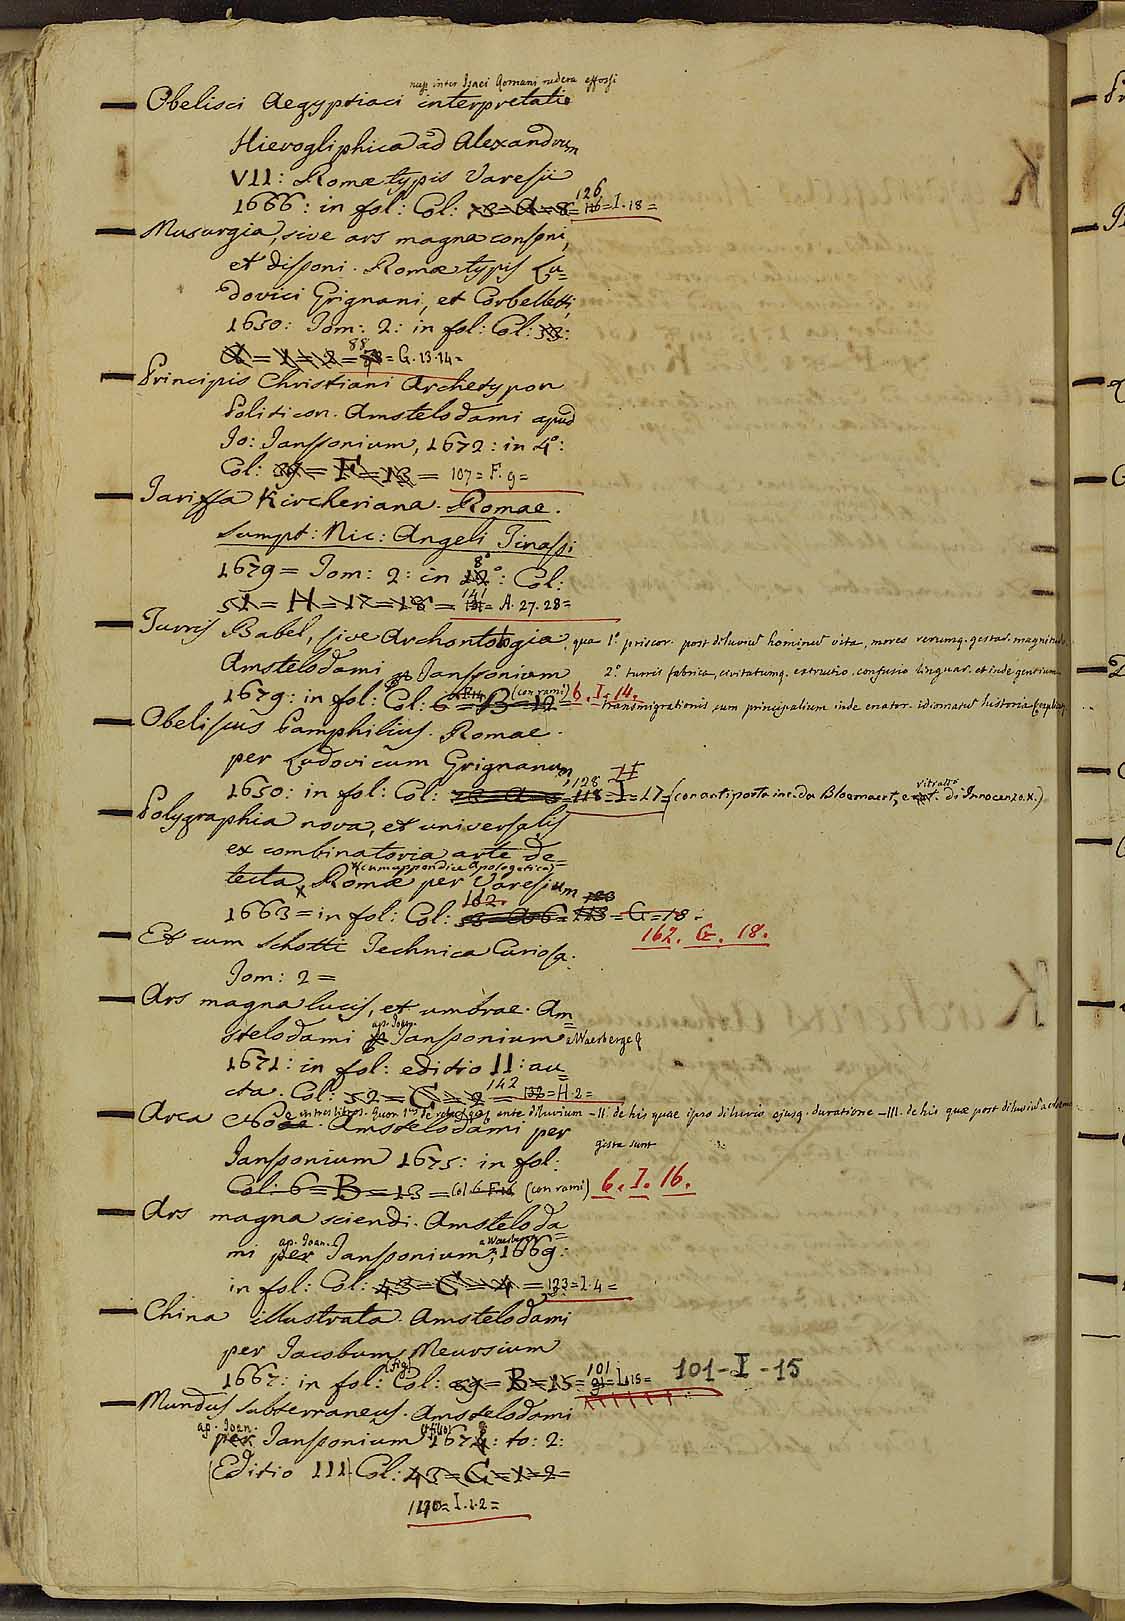 nup. inter Isaei Romani rudera effossi
Obelisci Aegyptiaci interpretatio
Hierogliphica ad Alexandrum
VII: Romae typis Varesii
1666: in fol: Col: 126 = I. 18 =
Musurgia, sive ars magna consoni,
et dissoni. Romae typis Lu=
dovici Grignani, et Corbelletti,
1650: Tom: 2: in fol: Col: 53:
88 = G. 13. 14 =
Principis Christiani Archetypon
Politicon. Amstelodami apud
Jo: Janssonium, 1672: in 4°:
Col: 39 = F = 13 = 107 = F. 9 =
Tariffa Kircheriana. Romae.
Sumpt: Nic: Angeli Tinassi
1679 = Tom: 2: in 8°: Col:
51 = H = 17 = 18 = 141 = A. 27. 28 =
Turris Babel, sive Archontologia, qua 1° priscor. post diluviũ hominũ vita, mores rerumq. gestar. magnitudo
Amstelodami Janssonium 2° turris fabrica, civitatumq. extructio, confusio linguar. et inde gentium
1679: in fol: Col: 6 = B = 12 = (con rami) 6. I. 14. transmigrationis, cum principalium inde enator. idiomatũ historia
Obeliscus Pamphilius. Romae.
per Ludovicum Grignanum,
1650: in fol: Col: 128 118 = I = 17 = (con antiporta inc. da Bloemaert, e ritratto di Innocenzo X.)
Polygraphia nova, et universalis
ex combinatoria arte de=
tecta, x Romae per Varesium
x (cum appendice apologetica)
1663 = in fol: Col: 162. 113 = G = 18.
162. G. 18.
Et cum Schotti Technica Curiosa.
Tom: 2 =
Ars magna lucis, et umbrae. Am=
stelodami ap. Joan. Janssonium a Waesberge &
1671: in fol: editio II: au=
cta. Col: 52 = C = 2 = 142 132 = H. 2 =
Arca Noe in tres libros. Quor. 1us de rebus quae ante diluvium – II. de his quae ipso diluvio ejusq. duratione – III. de his quae post diluviũ
Amstelodami per gesta sunt
Janssonium 1675: in fol:
Col: 6 = B = 13 = (con rami) 6. I. 16.
Ars magna sciendi. Amsteloda=
mi per ap. Joan. Janssonium, 1669:
in fol: Col: 43 = C = 4 = 133 = I. 4 =
China illustrata. Amstelodami
per Jacobum Meursium
1667: in fol: (fig) Col: 39 = B = 15 = 101 = I. 15 = 101 - I - 15
Mundus subterraneus. Amstelodami
per ap. Joan. Janssonium 1678: to: 2:
(Editio III) Col: 43 = C = 1 = 2 =
I. 1. 2 =